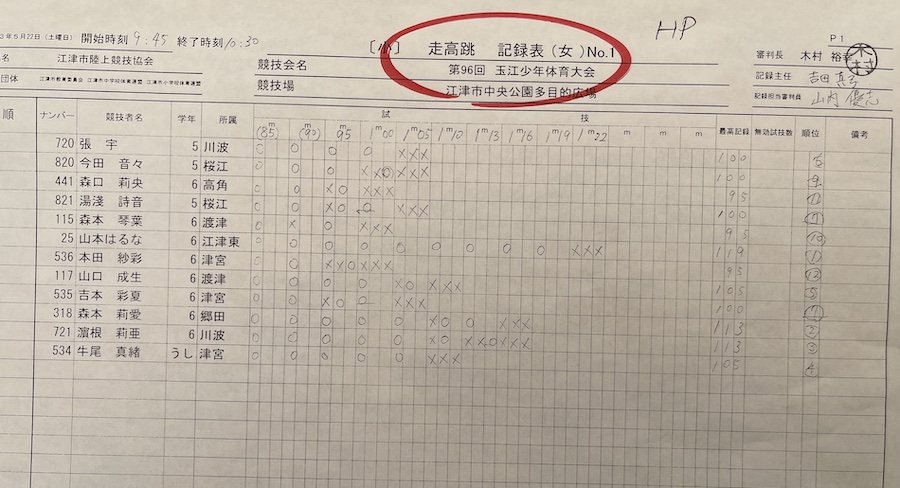 3年5月22日(土曜日) 開始時刻 9:45 終了時刻 10:30
HP
P1
名 江津市陸上競技協会
〔小〕 走高跳 記録表(女)No.1
競技会名 第96回 玉江少年体育大会
審判長 木村 裕幸
団体 江津市教育委員会 江津市中学校体育連盟 江津市小学校体育連盟
競技場 江津市中央公園多目的広場
記録主任 吉田
記録担当審判員 山内 優志
順 ナンバー 競技者名 学年 所属 試技 最高記録 無効試技数 順位 備考
(85) (90) 95 1m00 1m05 1m10 1m13 1m16 1m19 1m22 m m m
720 張 宇 5 川波 O O O O XXX 100
820 今田 音々 5 桜江 O O O XXO XXX 100 9
441 森口 莉央 6 高角 O O XO XXX 95
821 湯淺 詩音 5 桜江 O O XO O XXX 100
115 森本 琴葉 6 渡津 O X O XXX 95 10
25 山本はるな 6 江津東 O O O O O O O O O XXX 119 1
536 本田 紗彩 6 津宮 O O XXO XXX 95 12
117 山口 成生 6 渡津 O O O O XO XXX 105 5
535 吉本 彩夏 6 津宮 O O XO O XXX 100
318 森本 莉愛 6 郷田 O O O O O XO O XXX 113 2
721 濵根 莉亜 6 川波 O O O O O XO XXO XXX 113 3
534 牛尾 真緒 うし 津宮 O O O O O XXX 105 4